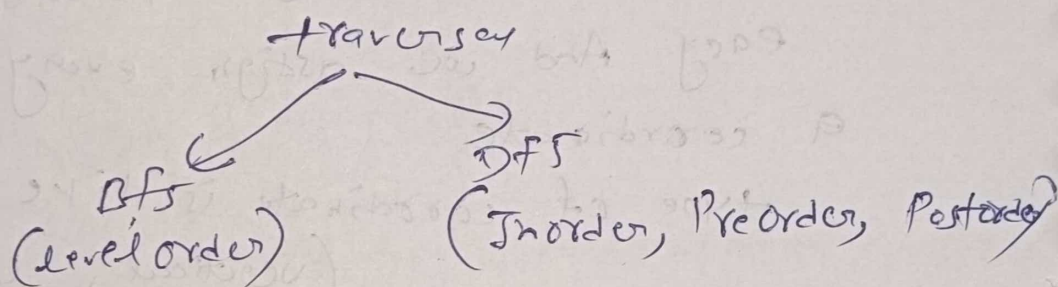 traversal
Bfs
DFS
(level order)
(Inorder, Preorder, Postorder)